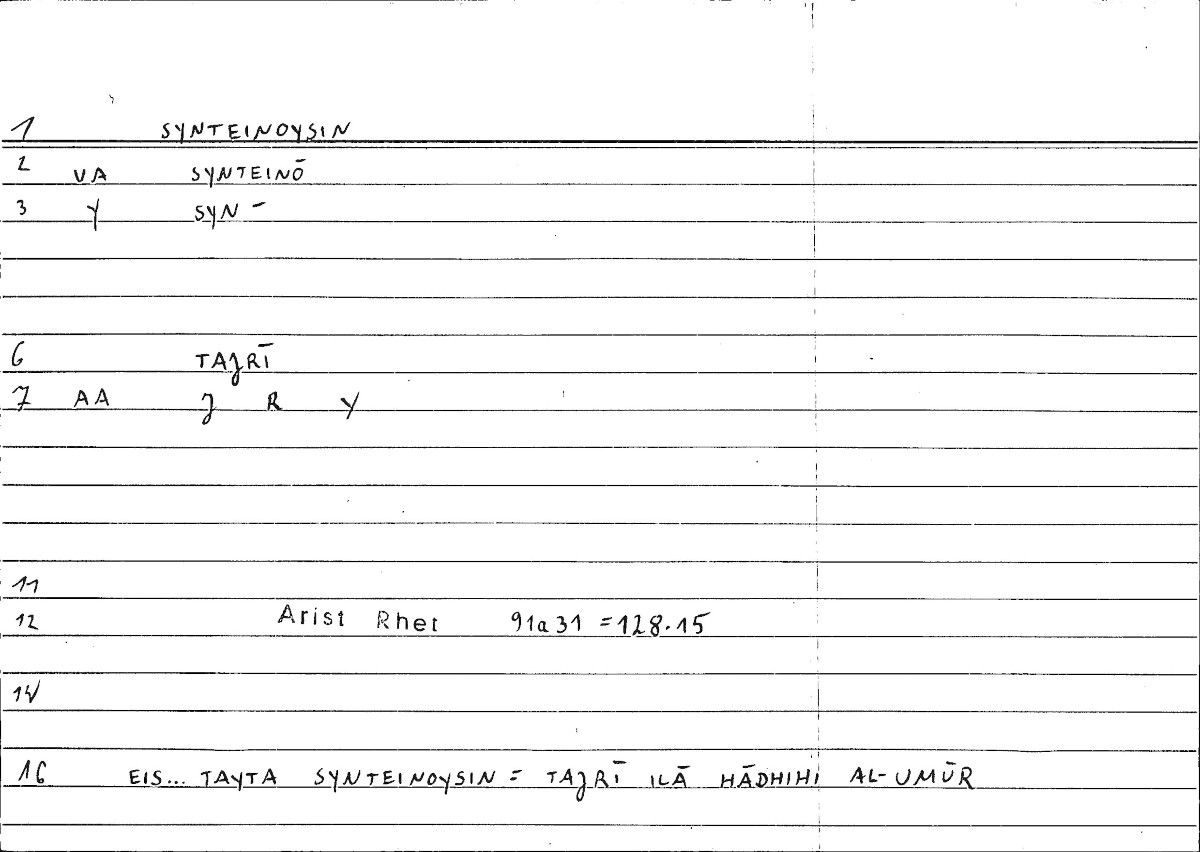 1 SYNTEINOYSIN
2 VA SYNTEINŌ
3 Y SYN -
6 TAJRĪ
7 AA J R Y
11
12 Arist Rhet 91a31 = 128.15
14
16 EIS... TAYTA SYNTEINOYSIN = TAJRĪ ILĀ HĀDHIHI AL-UMŪR